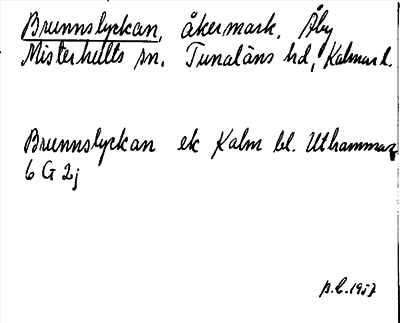 Brunnslyckan, åkermark, Åby
Misterhults sn. Tunaläns hd, Kalmar l.
Brunnslyckan ek Kalm bl. Uthammar
6 G 2j
1957